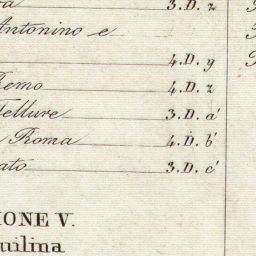 3.D. z
Antonino e
4.D. y
Remo 4.D. z
Tellure 3.D. a'
Roma 4.D. b'
3.D. c'
IONE V.
uilina